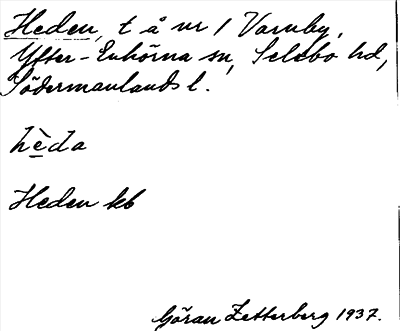 Heden, t å nr 1 Varnby,
Ytter-Enhörna sn, Selebo hd,
Södermanlands l.
hèda
Heden kb
Göran Zetterberg 1937.